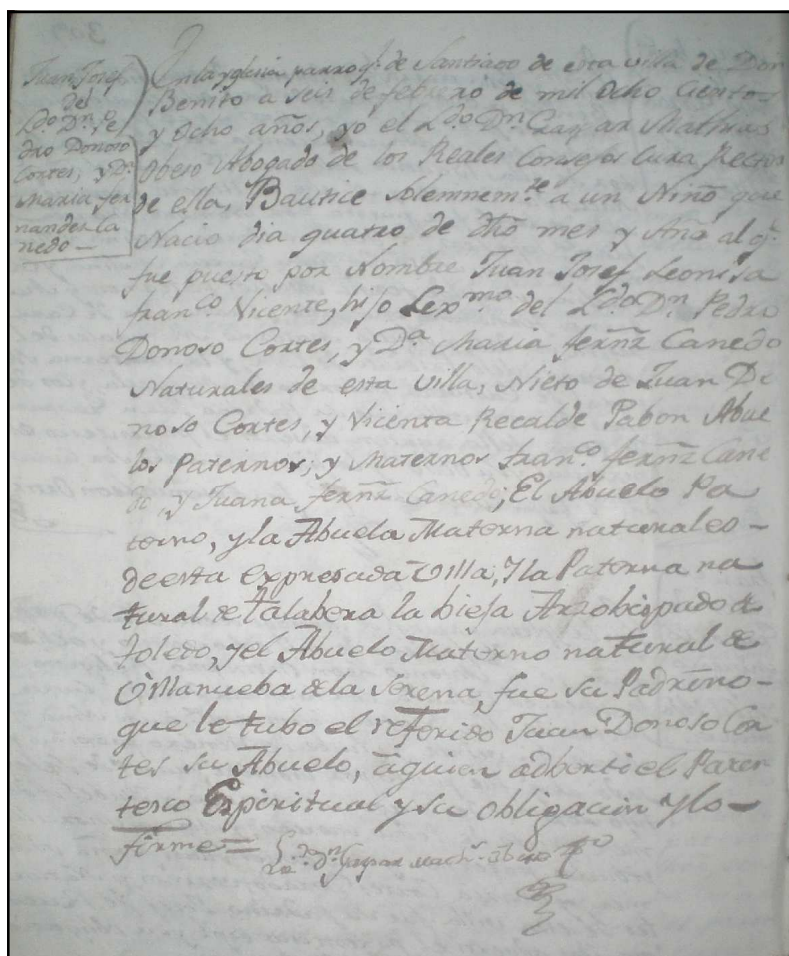 Juan Josef
del
Ldo Dn Pe
dro Donoso
Cortes, y Da
Maria fer
nandez Ca
nedo —
En la yglesia parroql de Santiago de esta villa de Don
Benito a seis de febrero de mil Ocho Cientos
y Ocho años, yo el Ldo Dn Gaspar Mathias
Obeso Abogado de los Reales Consejos Cura Rector
de ella, Bautice solemnemte a un Niño que
Nacio dia quatro de dho mes y Año al q.
fue puesto por Nombre Juan Josef Leonisa
franco Vicente, hijo Lexmo del Ldo Dn Pedro
Donoso Cortes, y Da Maria fernz Canedo
Naturales de esta villa, Nieto de Juan Do
noso Cortes, y Vicenta Recalde Pabon Abue
los Paternos; y Maternos franco fernz Cane
do, y Juana fernz Canedo; El Abuelo Pa
terno, y la Abuela Materna naturales —
de esta expresada Villa, Y la Paterna na
tural de talabera la bieja Arzobispado de
toledo, y el Abuelo Materno natural de
Villanueba de la Serena, fue su Padrino —
que le tubo el referido Juan Donoso Cor
tes su Abuelo, a quien adberti el Paren
tesco Espiritual y su obligacion y lo —
firme = Ldo Dn Gaspar Mathr Obeso